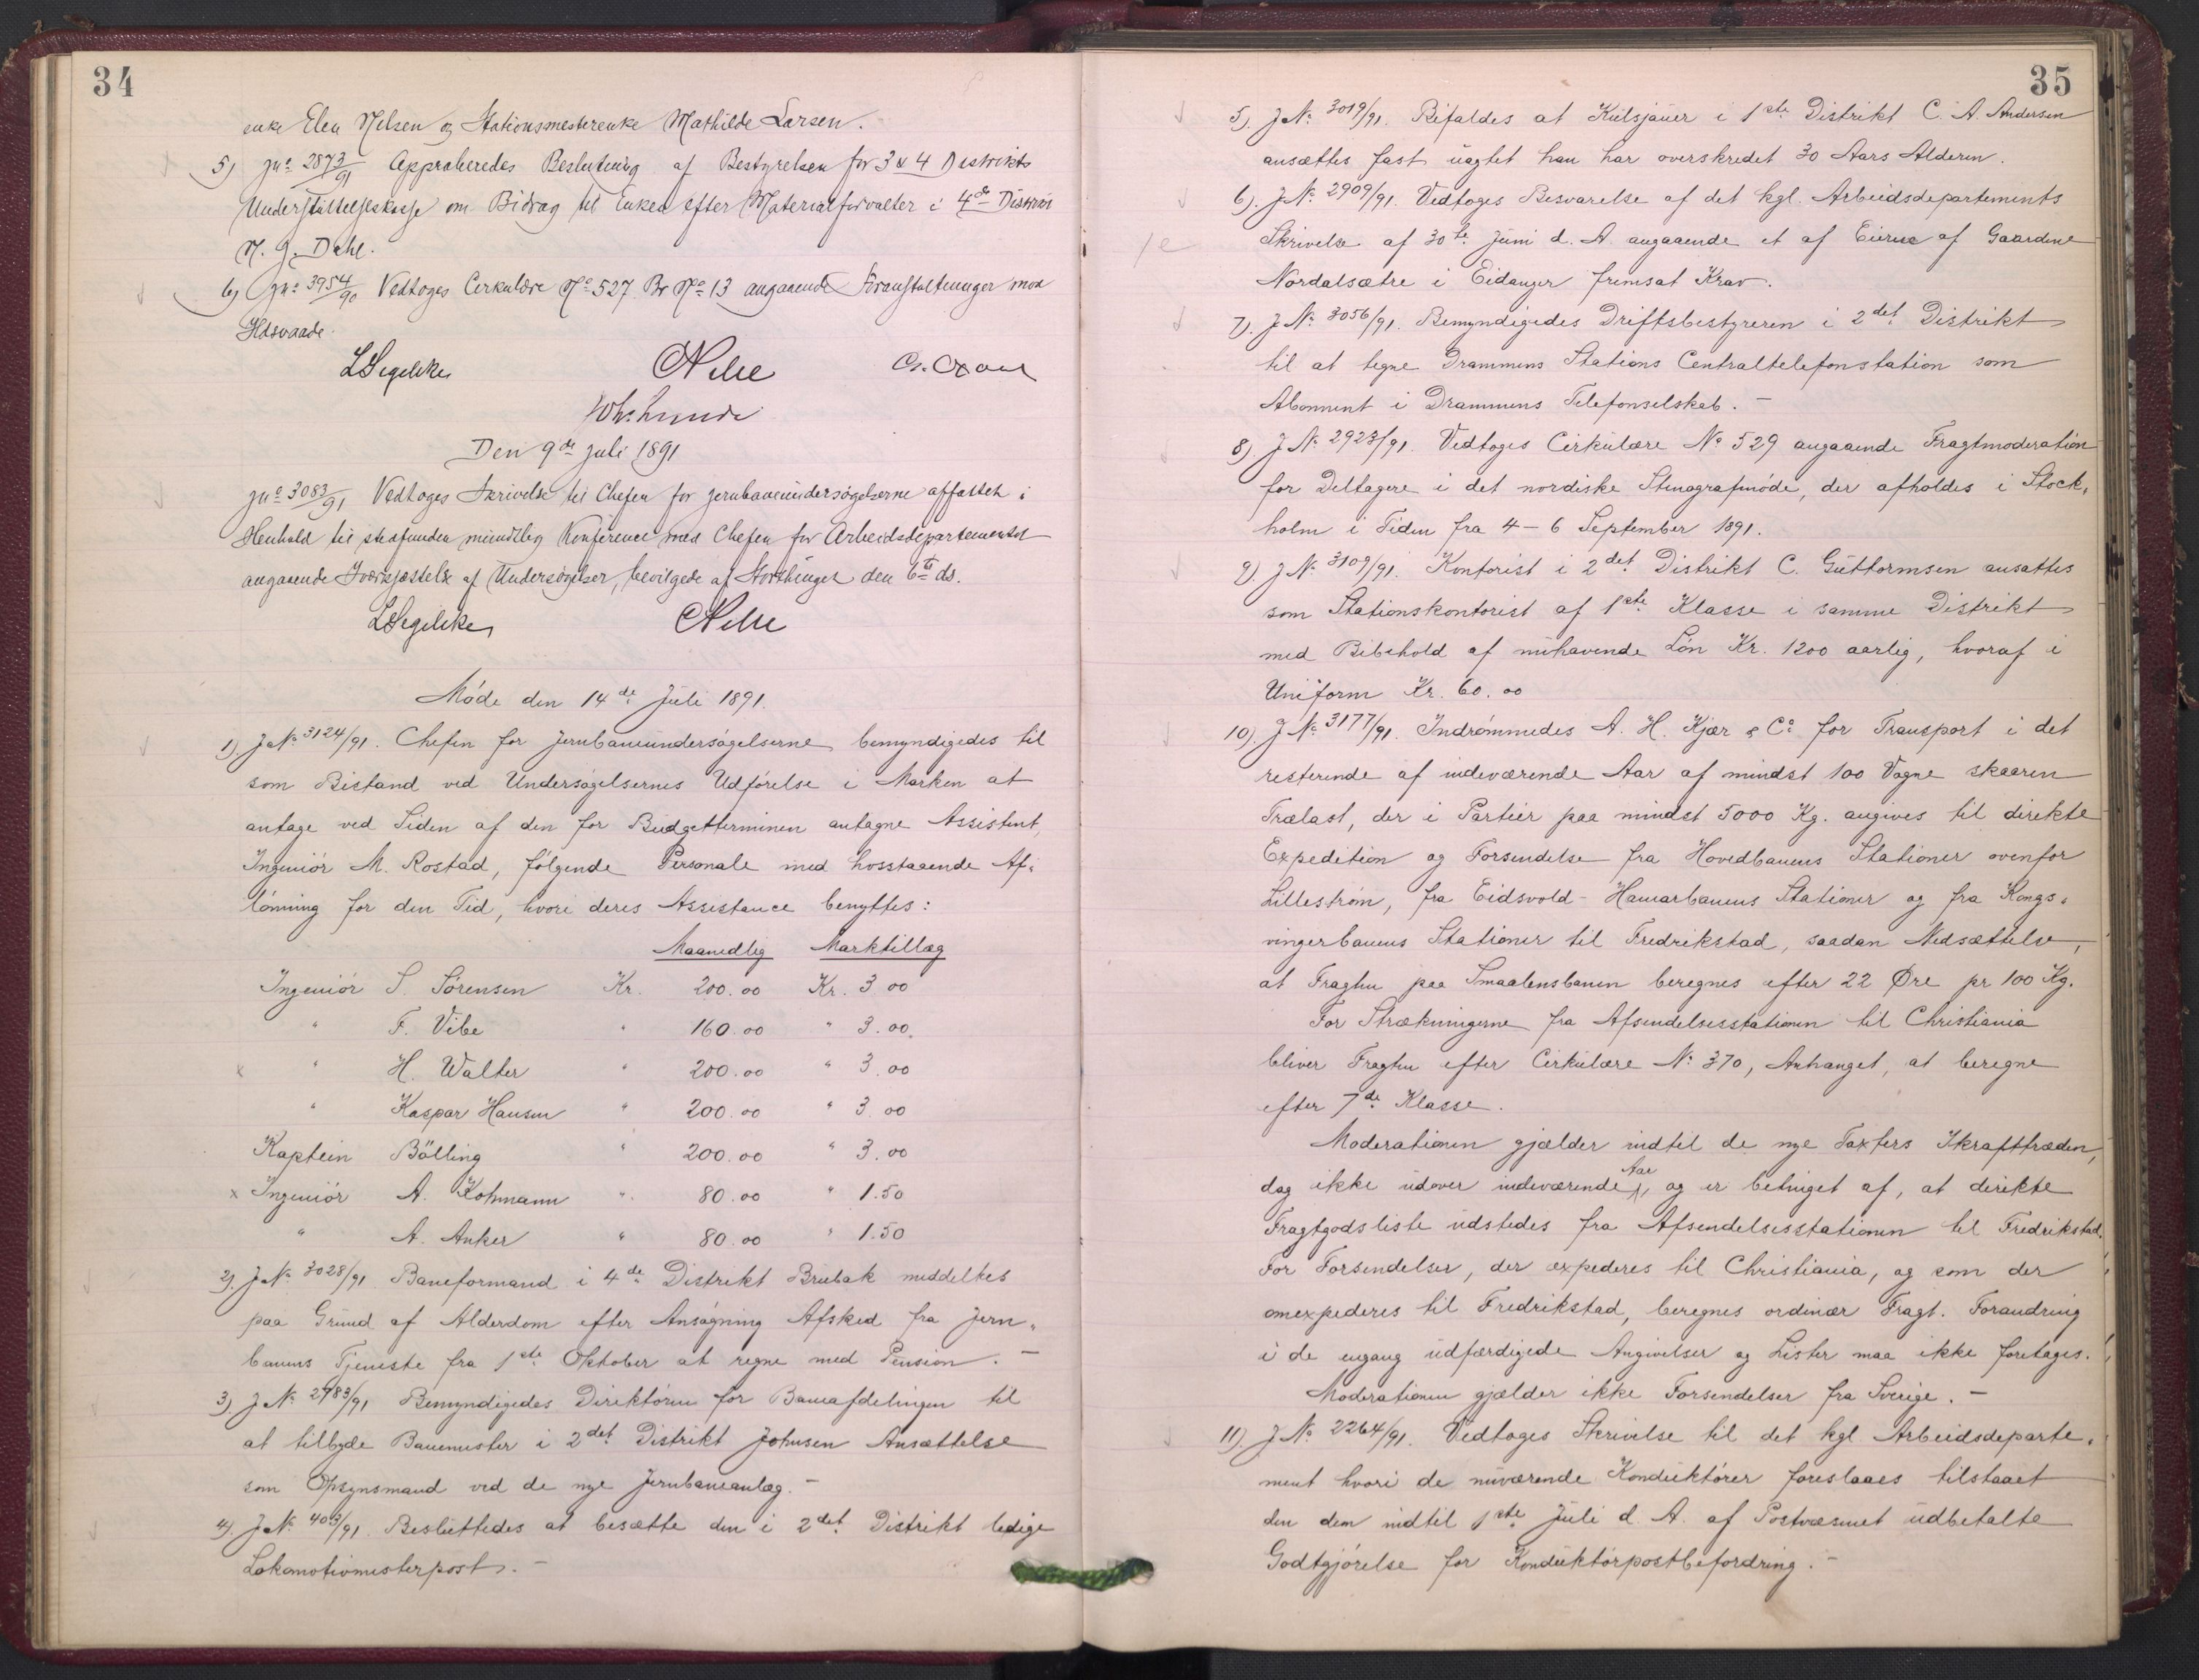 34
enke Elen Nelsen og Stationsmesterenke Mathilde Larsen.
5) Jnº 2873/91 Approberedes Beslutning af Bestyrelsen for 3 & 4 Distrikts
Understøttelseskasse om Bidrag til Enken efter Materialforvalter i 4de Distrikt
N. J. Dahl.
6) Jnº 3954/90 Vedtoges Cirkulære Nº 527 Br Nº 13 angaaende Foranstaltninger mod
Ildsvaade.
LSegelcke CPihl
Den 9de Juli 1891
Jnº 3083/91 Vedtoges Skrivelse til Chefen for Jernbaneundersøgelserne affattet i
Henhold til stedfunden mundtlig Konference med Chefen for Arbeidsdepartementet
angaaende Iværksættelse af Undersøgelser, bevilgede af Storthinget den 6te ds.
LSegelcke CPihl
Møde den 14de Juli 1891.
1). J.Nº 3124/91. Chefen for Jernbaneundersøgelserne bemyndigedes til
som Bistand ved Undersøgelsernes Udførelse i Marken at
antage ved Siden af den for Budgetterminen antagne Assistent,
Ingeniør M. Rostad, følgende Personale med hosstaaende Af-
lønning for den Tid, hvori deres Assistance benyttes:
Maanedlig Marktillæg
Ingeniør S. Sørensen Kr. 200.00 Kr. 3 00
" F. Vibe " 160.00 " 3.00.
x " H. Walter " 200.00 " 3.00
" Kaspar Hansen " 200.00 " 3.00
Kaptein Bølling " 200.00 " 3.00
x Ingeniør A. Kohmann " 80.00 " 1.50
" A. Anker " 80.00 " 1.50
2). J.Nº 3028/91. Baneformand i 4de Distrikt Brubak meddeltes
paa Grund af Alderdom efter Ansøgning Afsked fra Jern-
banens Tjeneste fra 1ste Oktober at regne med Pension. —
3). J.Nº 2783/91 Bemyndigedes Direktøren for Baneafdelingen til
at tilbyde Banemester i 2det Distrikt Johnsen Ansættelse
som Opsynsmand ved de nye Jernbaneanlæg. —
4). J.Nº 403/91. Besluttedes at besætte den i 2det Distrikt ledige
Lokomotivmesterpost. —
35
5). J.Nº 3019/91. Bifaldes at Kulsjauer i 1ste Distrikt C. A. Andersen
ansættes fast uagtet han har overskredet 30 Aars Alderen.
6). J.Nº 2909/91. Vedtoges Besvarelse af det kgl. Arbeidsdepartements
Skrivelse af 30te Juni d. A. angaaende et af Eierne af Gaardene
Nordalsætre i Eidanger fremsat Krav.
7). J.Nº 3056/91. Bemyndigedes Driftsbestyreren i 2det Distrikt
til at tegne Drammens Stations Centraltelefonstation som
Abonnent i Drammens Telefonselskab. —
8). J.Nº 2923/91. Vedtoges Cirkulære Nº 529 angaaende Fragtmoderation
for Deltagere i det nordiske Stenografmøde, der afholdes i Stock-
holm i Tiden fra 4 – 6 September 1891.
9). J.Nº 3109/91. Kontorist i 2det Distrikt C. Guttormsen ansattes
som Stationskontorist af 1ste Klasse i samme Distrikt
med Bibehold af nuhavende Løn Kr. 1200 aarlig, hvoraf i
Uniform Kr. 60.00
10). J.Nº 3177/91. Indrømmedes A. H. Kjær & Cº for Transport i det
resterende af indeværende Aar af mindst 100 Vogne skaaren
Trælast, der i Partier paa mindst 5000 Kg. angives til direkte
Expedition og Forsendelse fra Hovedbanens Stationer ovenfor
Lillestrøm, fra Eidsvold-Hamarbanens Stationer og fra Kongs-
vingerbanens Stationer til Fredrikstad, saadan Nedsættelse,
at Fragten paa Smaalensbanen beregnes efter 22 Øre pr 100 Kg.
For Strækningerne fra Afsendelsesstationen til Christiania
bliver Fragten efter Cirkulære Nº 370, Anhanget, at beregne
efter 7de Klasse.
Moderationen gjælder indtil de nye Taxters Ikrafttræden,
dog ikke udover indeværende Aar, og er betinget af, at direkte
Fragtgodsliste udstedes fra Afsendelsesstationen til Fredrikstad.
For Forsendelser, der expederes til Christiania, og som der
omexpederes til Fredrikstad, beregnes ordinær Fragt. Forandring
i de engang udfærdigede Angivelser og Lister maa ikke foretages.
Moderationen gjælder ikke Forsendelser fra Sverige. —
11). J.Nº 2264/91. Vedtoges Skrivelse til det kgl Arbeidsdeparte-
ment hvori de nuværende Konduktører foreslaaes tilstaaet
den dem indtil 1ste Juli d. A. af Postvæsenet udbetalte
Godtgjørelse for Konduktørpostbefordring. —